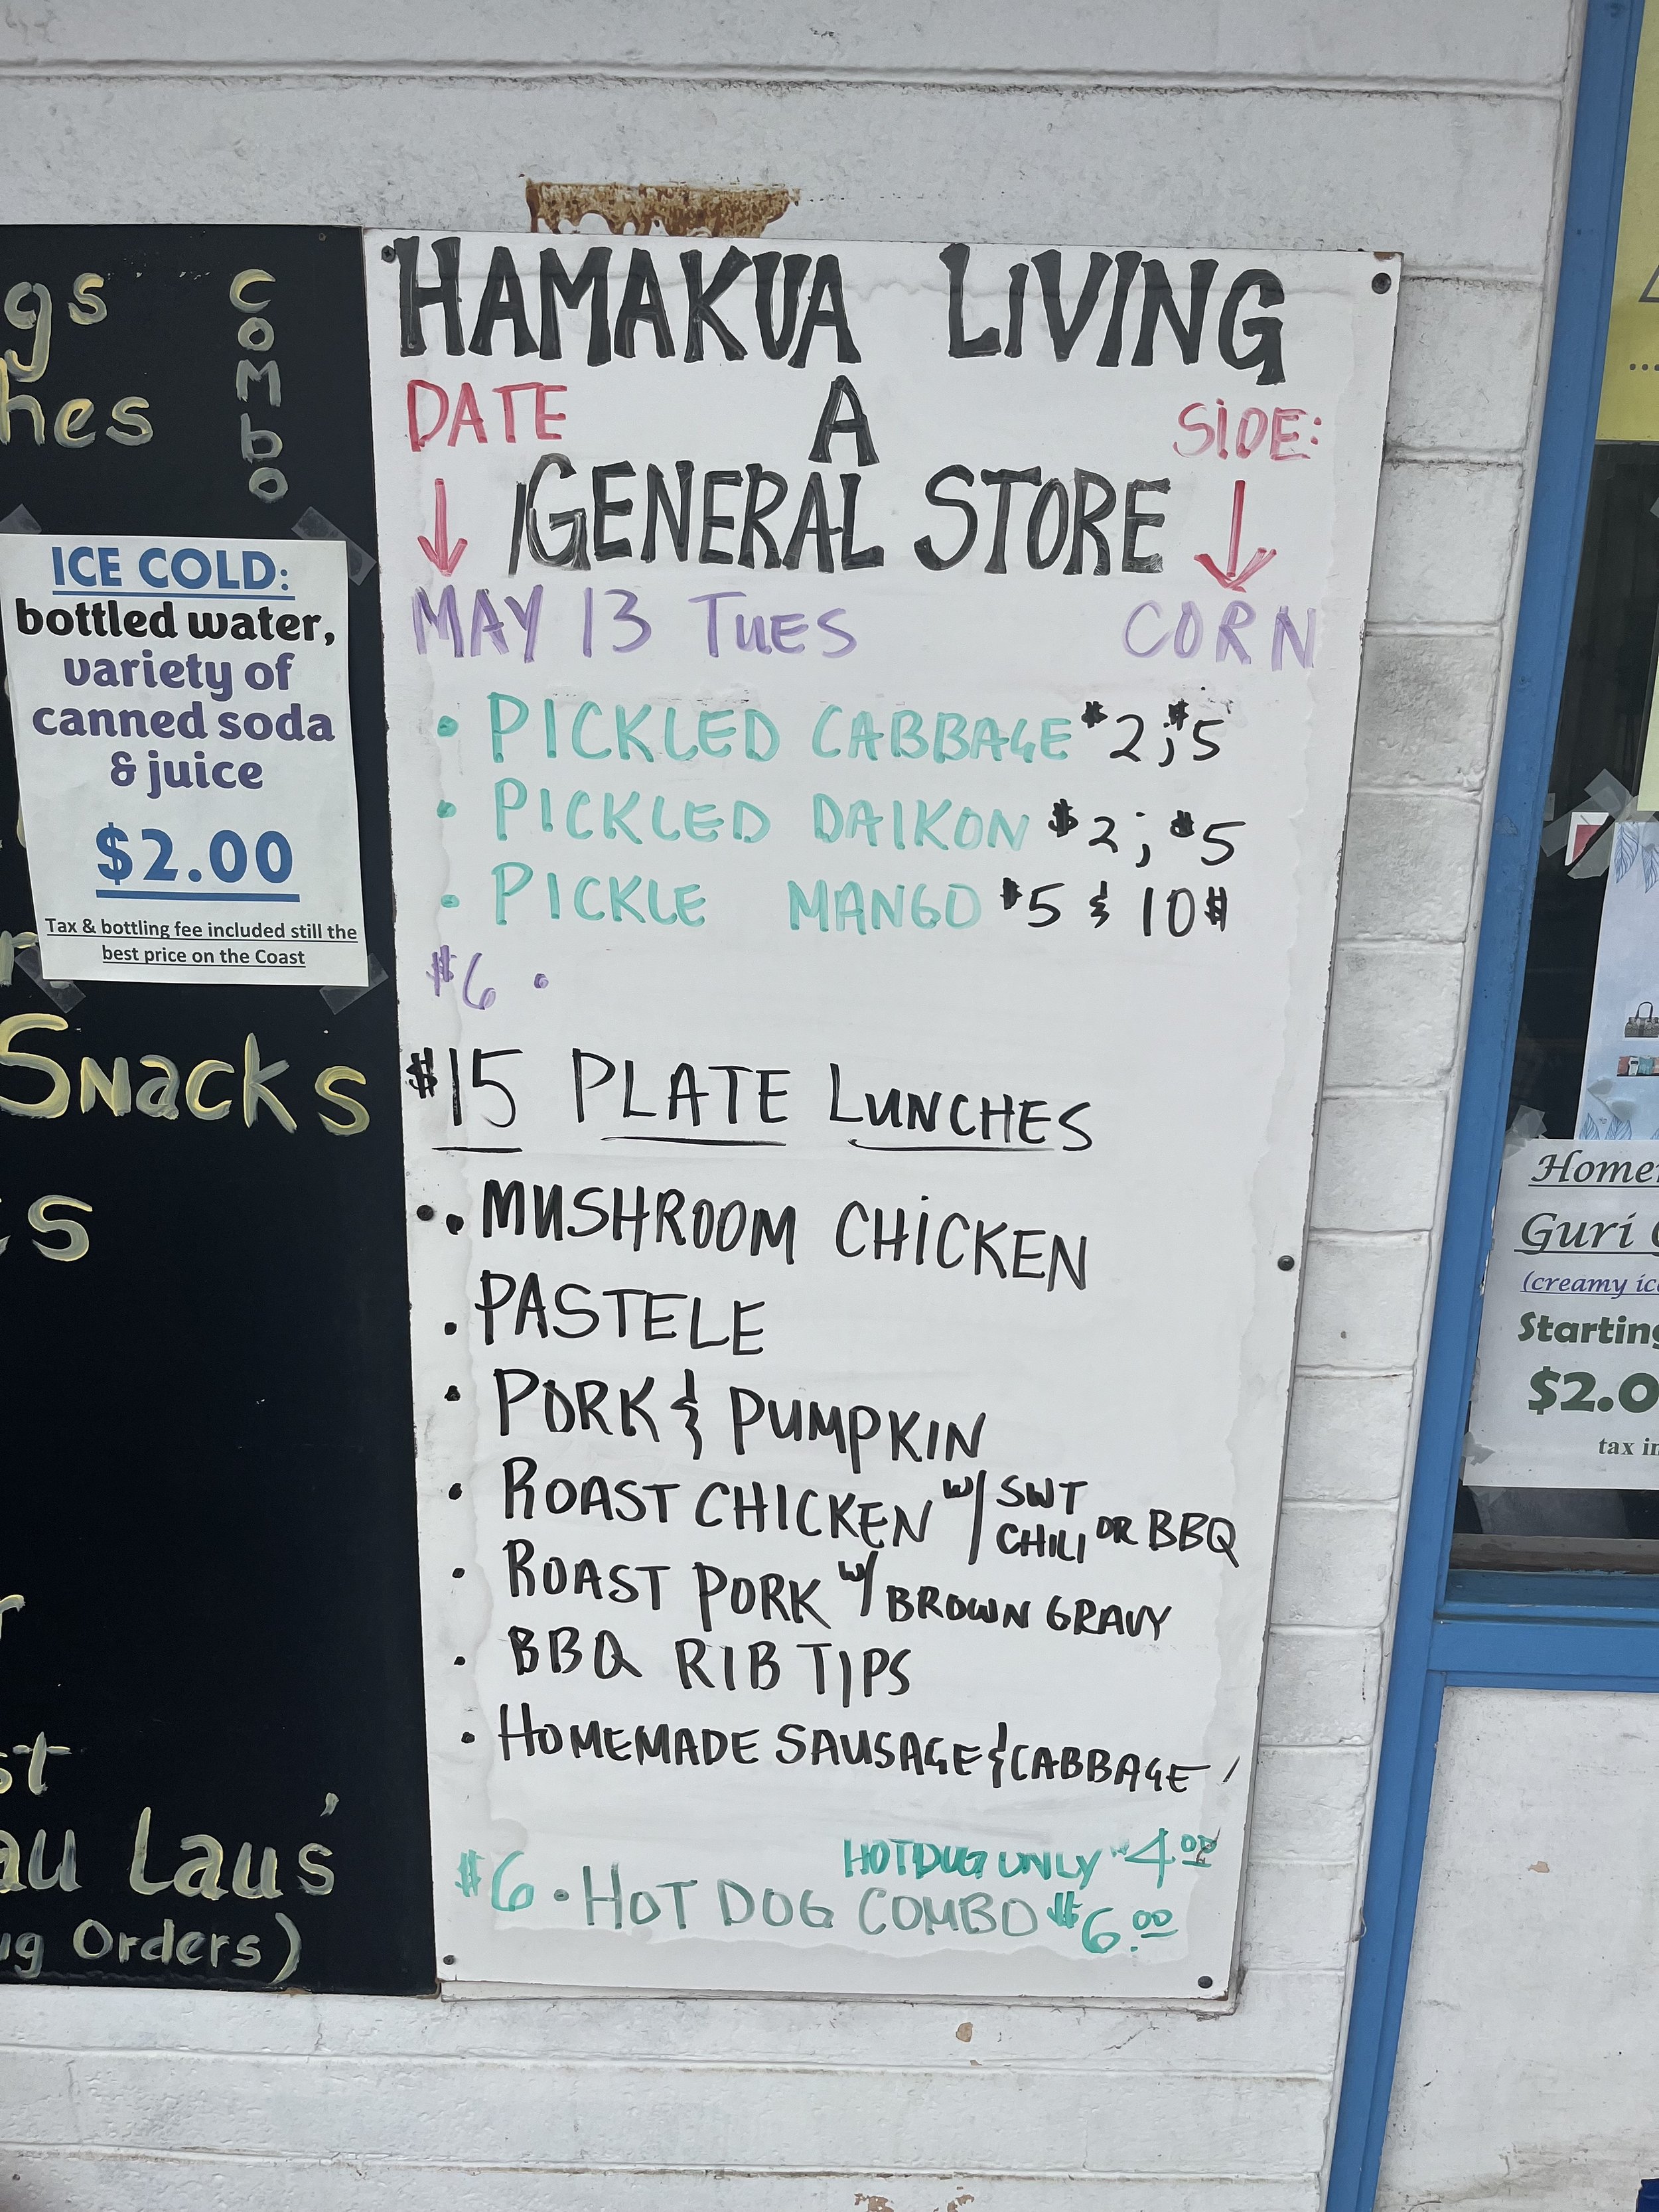 HAMAKUA LIVING
DATE A SIDE:
GENERAL STORE
MAY 13 TUES CORN
• PICKLED CABBAGE $2; $5
• PICKLED DAIKON $2; $5
• PICKLE MANGO $5 & 10$
$6 •
$15 PLATE LUNCHES
• MUSHROOM CHICKEN
• PASTELE
• PORK & PUMPKIN
• ROAST CHICKEN w/ SWT CHILI OR BBQ
• ROAST PORK w/ BROWN GRAVY
• BBQ RIB TIPS
• HOMEMADE SAUSAGE & CABBAGE
HOTDOG ONLY $4.00
$6 • HOT DOG COMBO $6.00
gs
hes
Combo
ICE COLD:
bottled water,
variety of
canned soda
& juice
$2.00
Tax & bottling fee included still the
best price on the Coast
Snacks
s
r
st
au Laus'
ug Orders)
Home
Guri
(creamy ic
Starting
$2.0
tax in